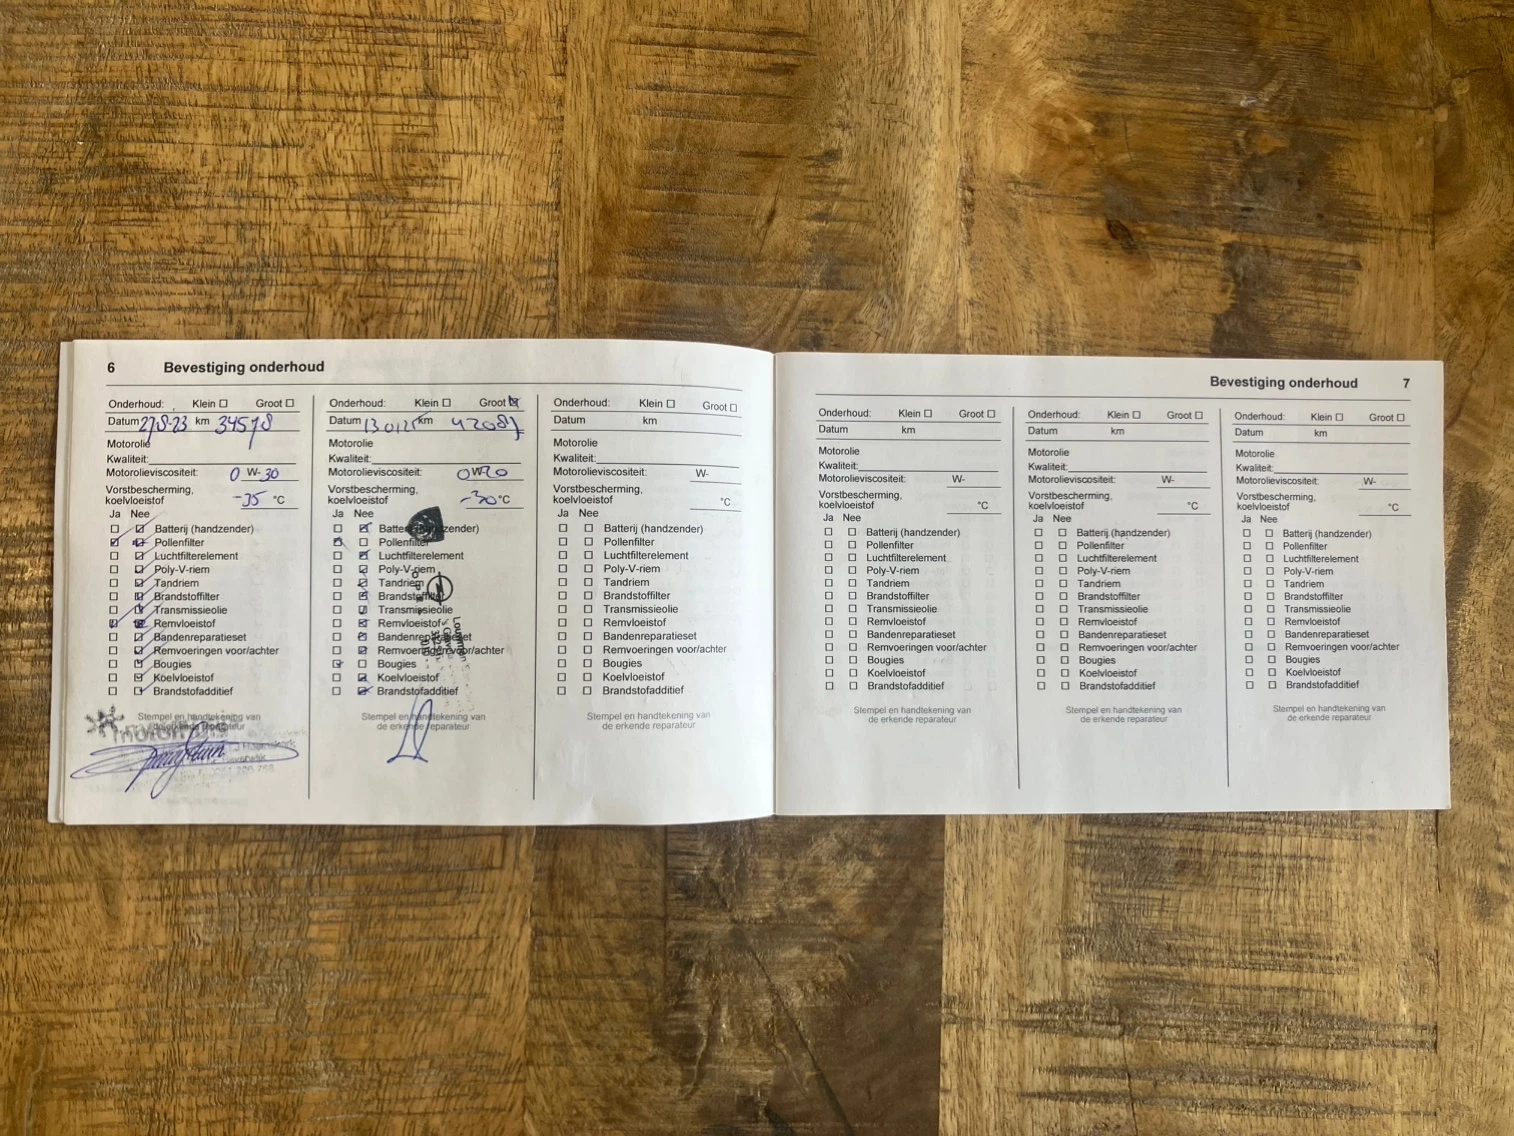 6 Bevestiging onderhoud
Onderhoud: Klein Groot
Datum km 34578
Motorolie
Kwaliteit:
Motorolieviscositeit: 0 W- 30
Vorstbescherming,
koelvloeistof -35 °C
Ja Nee
Batterij (handzender)
Pollenfilter
Luchtfilterelement
Poly-V-riem
Tandriem
Brandstoffilter
Transmissieolie
Remvloeistof
Bandenreparatieset
Remvoeringen voor/achter
Bougies
Koelvloeistof
Brandstofadditief
Stempel en handtekening van
de erkende reparateur
Onderhoud: Klein Groot
Datum km
Motorolie
Kwaliteit:
Motorolieviscositeit: 0 W-20
Vorstbescherming,
koelvloeistof -30 °C
Ja Nee
Batterij (handzender)
Pollenfilter
Luchtfilterelement
Poly-V-riem
Tandriem
Brandstoffilter
Transmissieolie
Remvloeistof
Bandenreparatieset
Remvoeringen voor/achter
Bougies
Koelvloeistof
Brandstofadditief
Stempel en handtekening van
de erkende reparateur
Onderhoud: Klein Groot
Datum km
Motorolie
Kwaliteit:
Motorolieviscositeit: W-
Vorstbescherming,
koelvloeistof °C
Ja Nee
Batterij (handzender)
Pollenfilter
Luchtfilterelement
Poly-V-riem
Tandriem
Brandstoffilter
Transmissieolie
Remvloeistof
Bandenreparatieset
Remvoeringen voor/achter
Bougies
Koelvloeistof
Brandstofadditief
Stempel en handtekening van
de erkende reparateur
Bevestiging onderhoud 7
Onderhoud: Klein Groot
Datum km
Motorolie
Kwaliteit:
Motorolieviscositeit: W-
Vorstbescherming,
koelvloeistof °C
Ja Nee
Batterij (handzender)
Pollenfilter
Luchtfilterelement
Poly-V-riem
Tandriem
Brandstoffilter
Transmissieolie
Remvloeistof
Bandenreparatieset
Remvoeringen voor/achter
Bougies
Koelvloeistof
Brandstofadditief
Stempel en handtekening van
de erkende reparateur
Onderhoud: Klein Groot
Datum km
Motorolie
Kwaliteit:
Motorolieviscositeit: W-
Vorstbescherming,
koelvloeistof °C
Ja Nee
Batterij (handzender)
Pollenfilter
Luchtfilterelement
Poly-V-riem
Tandriem
Brandstoffilter
Transmissieolie
Remvloeistof
Bandenreparatieset
Remvoeringen voor/achter
Bougies
Koelvloeistof
Brandstofadditief
Stempel en handtekening van
de erkende reparateur
Onderhoud: Klein Groot
Datum km
Motorolie
Kwaliteit:
Motorolieviscositeit: W-
Vorstbescherming,
koelvloeistof °C
Ja Nee
Batterij (handzender)
Pollenfilter
Luchtfilterelement
Poly-V-riem
Tandriem
Brandstoffilter
Transmissieolie
Remvloeistof
Bandenreparatieset
Remvoeringen voor/achter
Bougies
Koelvloeistof
Brandstofadditief
Stempel en handtekening van
de erkende reparateur